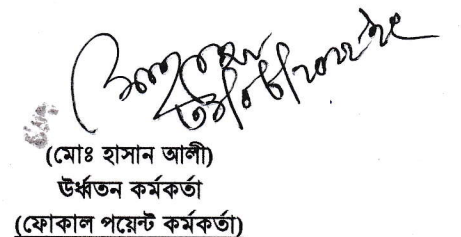 (মোঃ হাসান আলী)
উর্ধ্বতন কর্মকর্তা
(ফোকাল পয়েন্ট কর্মকর্তা)